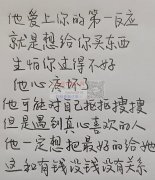 他爱上你的第一反应
就是想给你买东西
生怕你过得不好
他心疼坏了
他可能对自己抠抠搜搜
但是遇到真心喜欢的人
他一定想把最好的给她
这和有钱没钱没有关系